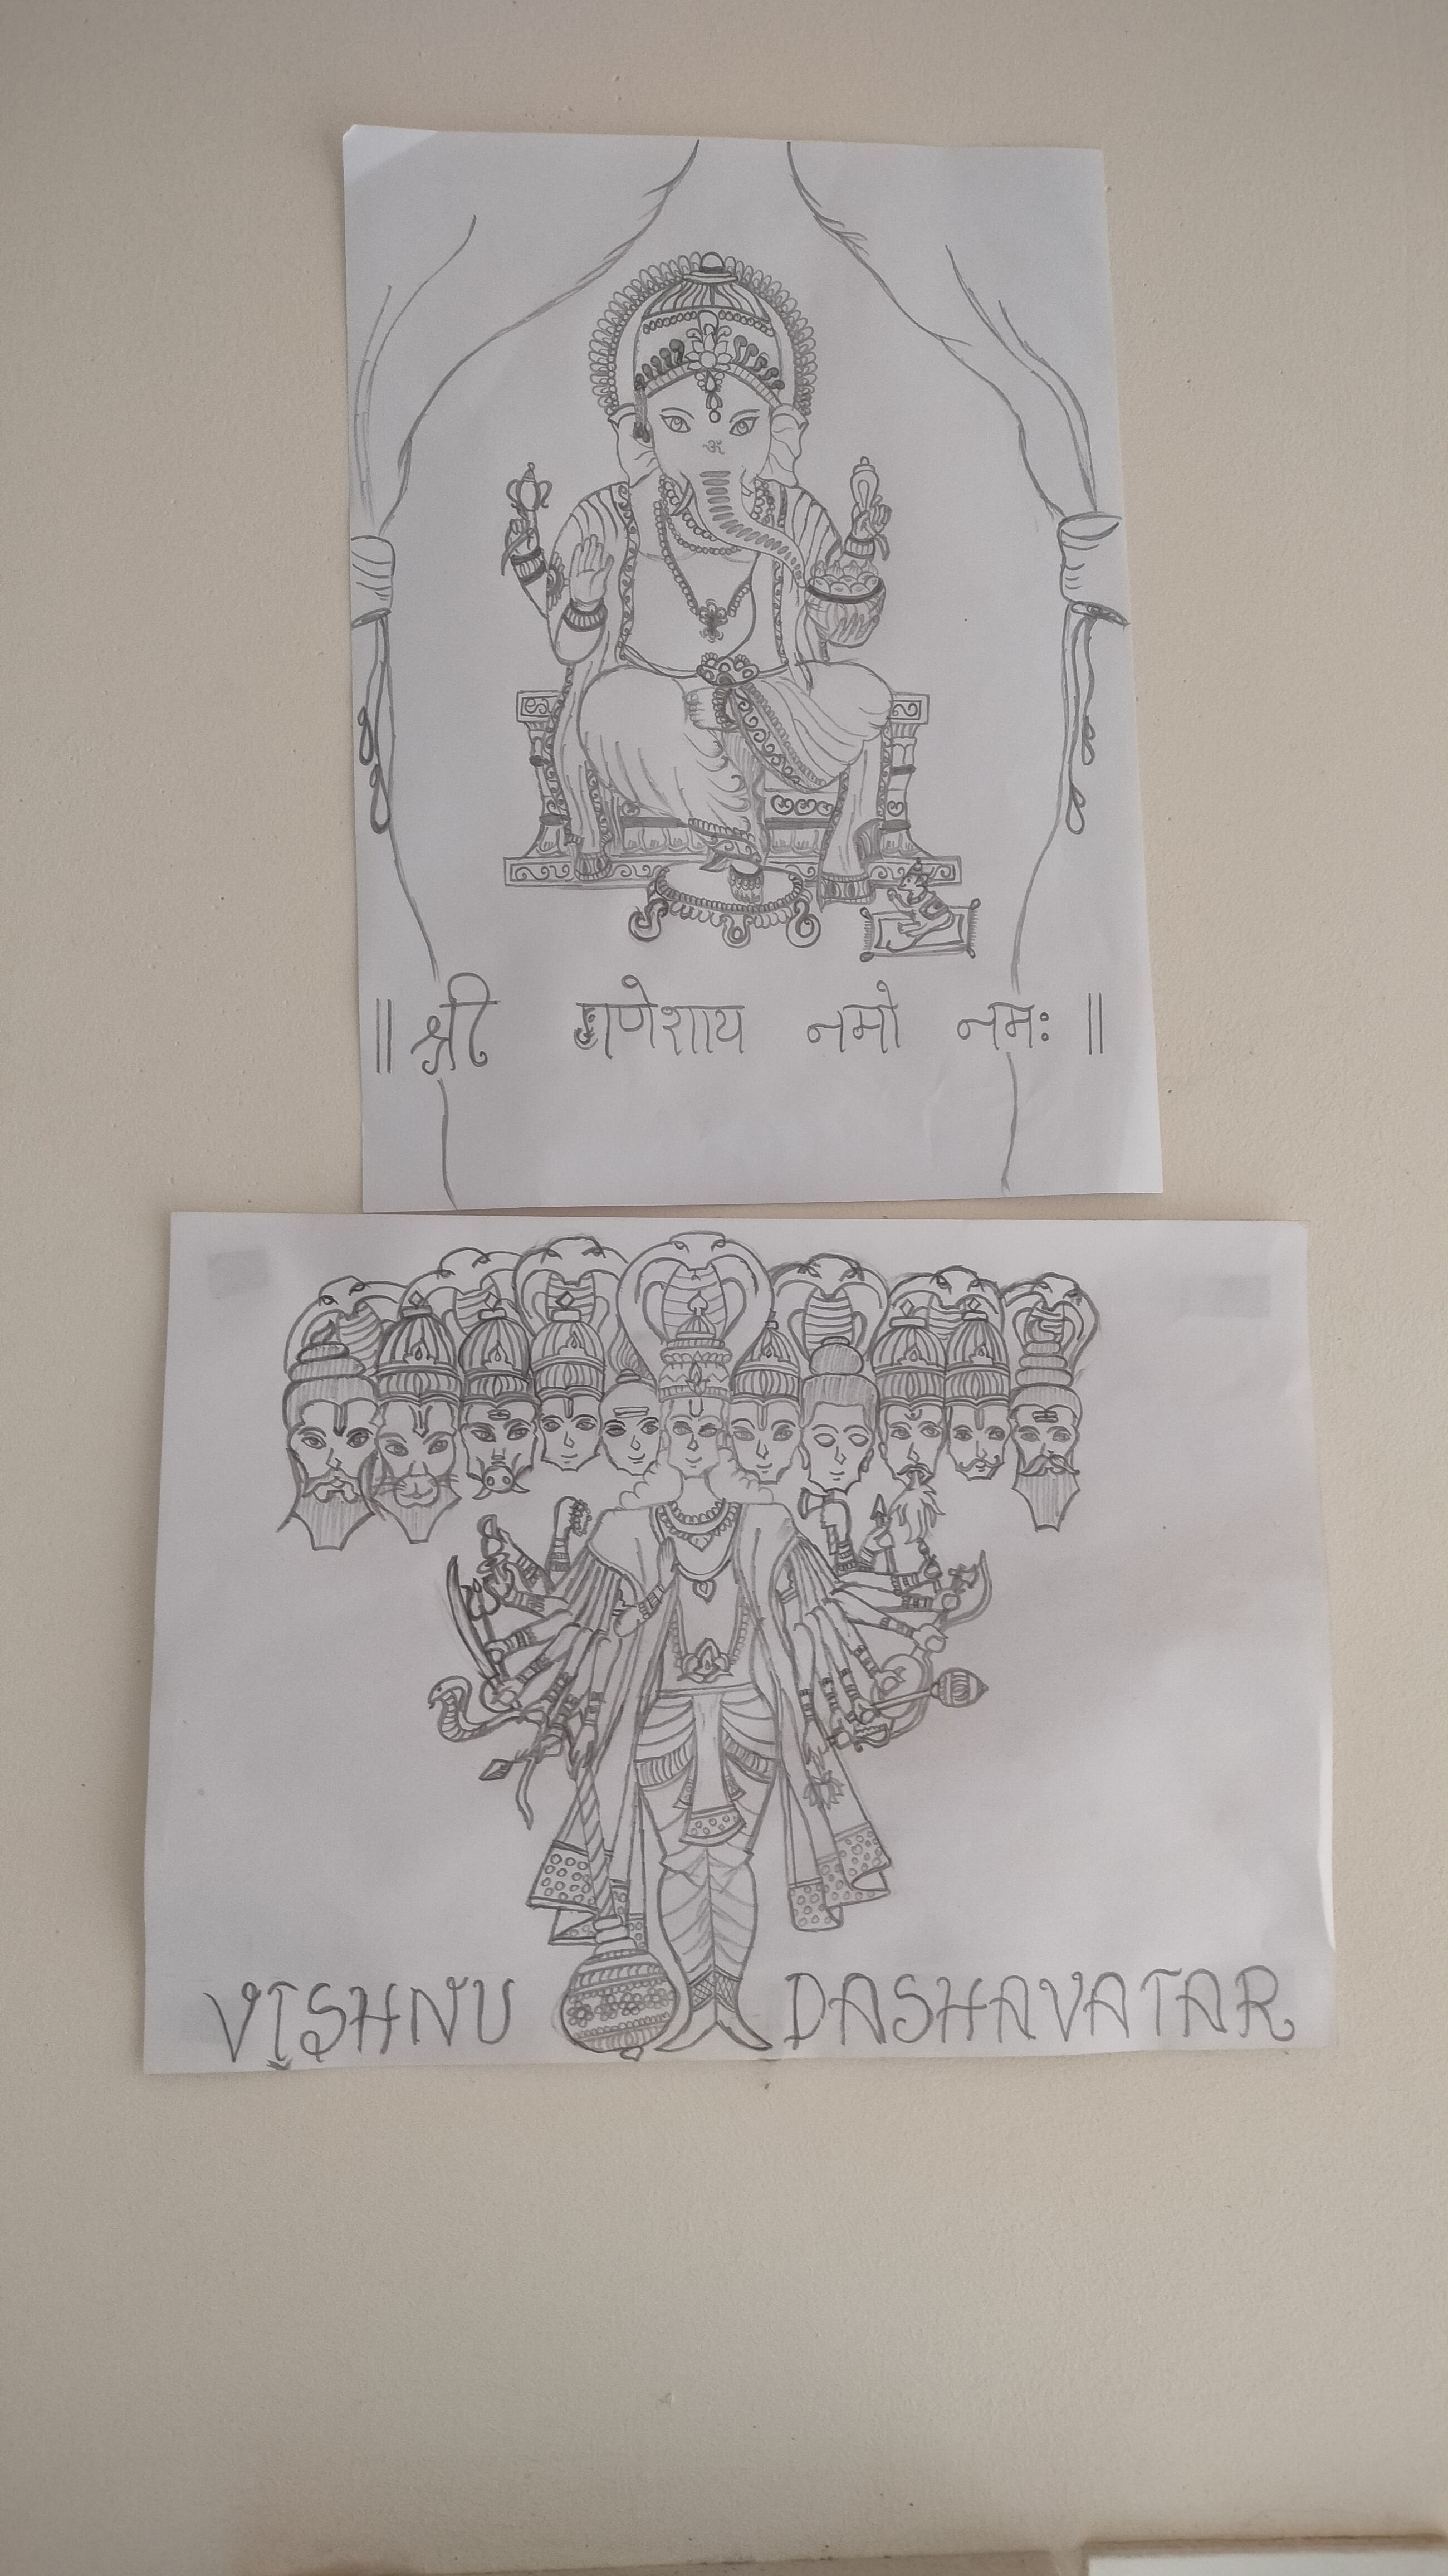 ॐ
|| श्री गणेशाय नमो नमः ||
VISHNU DASHAVATAR